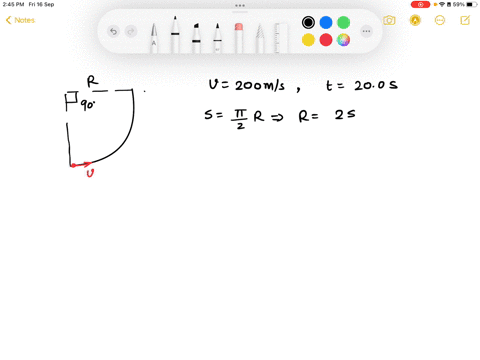 2:45 PM Fri 16 Sep
59%
Notes
R
90°
v
v = 200 m/s , t = 20.0 s
s = π/2 R ⇒ R = 2s